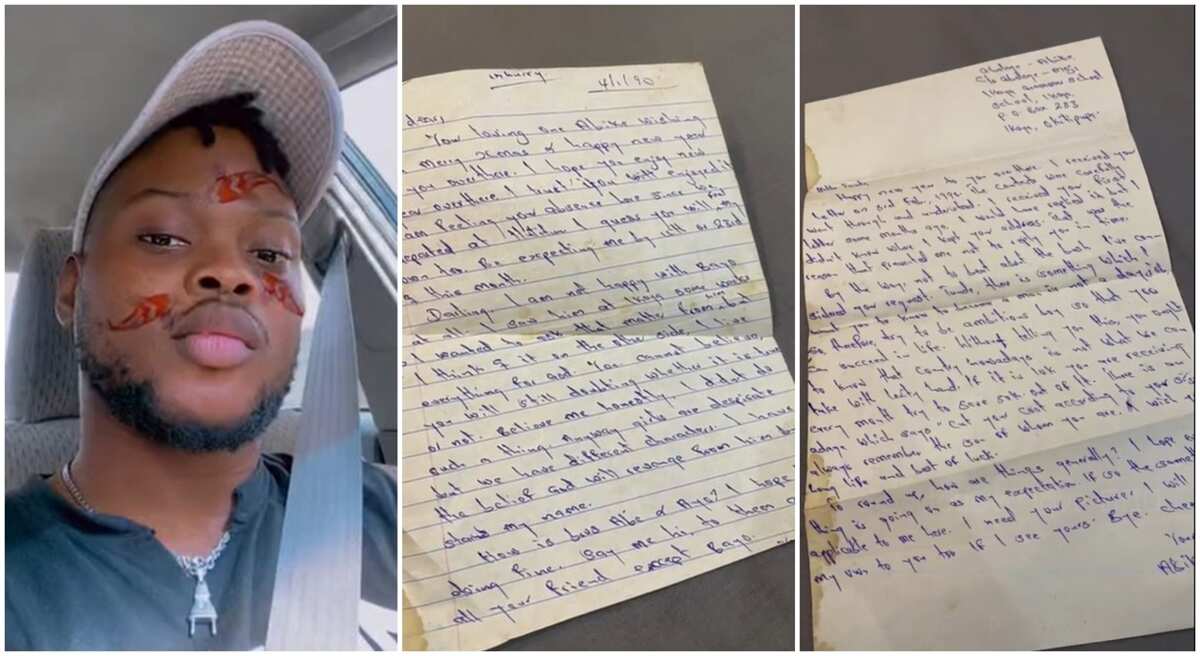 4/1/90
dear,
Your loving one Abike wishing
merry Xmas & happy new year
you overthere. I hope you enjoy new
overthere. I trust you will enjoyed it
am feeling your absence here since we
at I guess you will my
too. Be expecting me by 15th or 22nd
this month.
Darling, I am not happy with Bayo
at all. I saw him at Ikoya some weeks
I wanted to ask that matter from him but
I think of it on the other side, I leave
everything for God. You cannot believe,
you will still doubting whether it is true
or not. Believe me honestly, I didn't do
such a thing. Anyway girls are desperate
but we have different character. I have
the belief God will revenge from him
my name.
How is Abe & Ayo? I hope
doing fine. Say me hi to them
all your friend except Bayo.
Abidoye - Abike
C/o Abidoye - Moji
Ikoya Grammar School
School, Ikoya,
P.O. Box 283
Ikoya, Okitipupa.
Hello
Happy new year to you overthere. I received your
letter on 3rd Feb, The content were carefully
went through and understood. I received your first
letter some months ago. I would have replied it but I
didn't know where I kept your address. That was the
reason that prevented me not to reply you in time.
By the way, not to beat about the bush I've con-
sidered your request. there is something which I
want you to know to
Therefore, try to be ambitious boy so that you
succeed in life. Without telling you this, you ought
to know that country nowadays is not what we can
take with hand. If it is 10k you are receiving
every month try to save 50k out of it. There is an
adage which says "Cut your coat according to your size
always remember the son of whom you are. I wish you
long life and best of luck.
To round up, how are things generally? I hope
thing is going on as my expectation if so the same
applicable to me here. I need your picture. I will
my own to you too if I see yours. Bye.